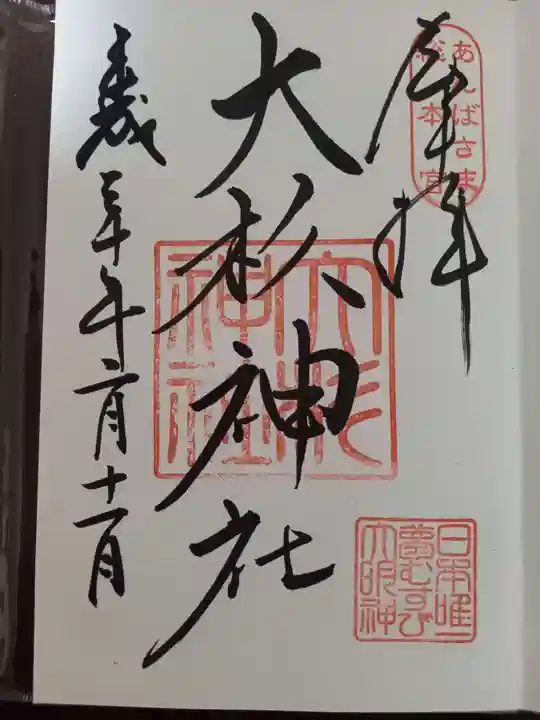 奉拝
あんばさま
総本宮
大杉神社
大杉
神社
日本唯一
夢むすび
大明神
平成三十年二月十一日